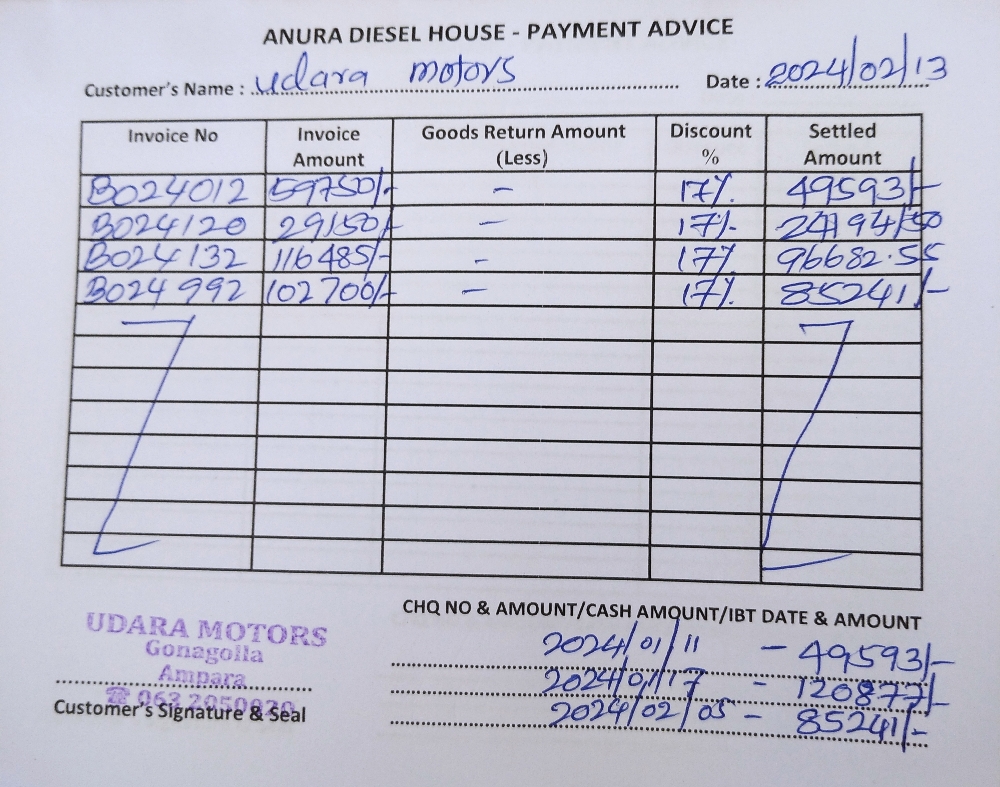 ANURA DIESEL HOUSE - PAYMENT ADVICE
Customer's Name : Udara motors Date : 2024/02/13
Invoice No Invoice Amount Goods Return Amount (Less) Discount % Settled Amount
B024012 59750/- - 17% 49593/-
B024120 29150/- - 17% 24194/50
B024132 116485/- - 17% 96682.55
B024992 102700/- - 17% 85241/-
CHQ NO & AMOUNT/CASH AMOUNT/IBT DATE & AMOUNT
2024/01/11 - 49593/-
2024/01/17 - 120877/-
2024/02/05 - 85241/-
UDARA MOTORS
Gonagolla
Ampara
☎ 063 2050020
Customer's Signature & Seal